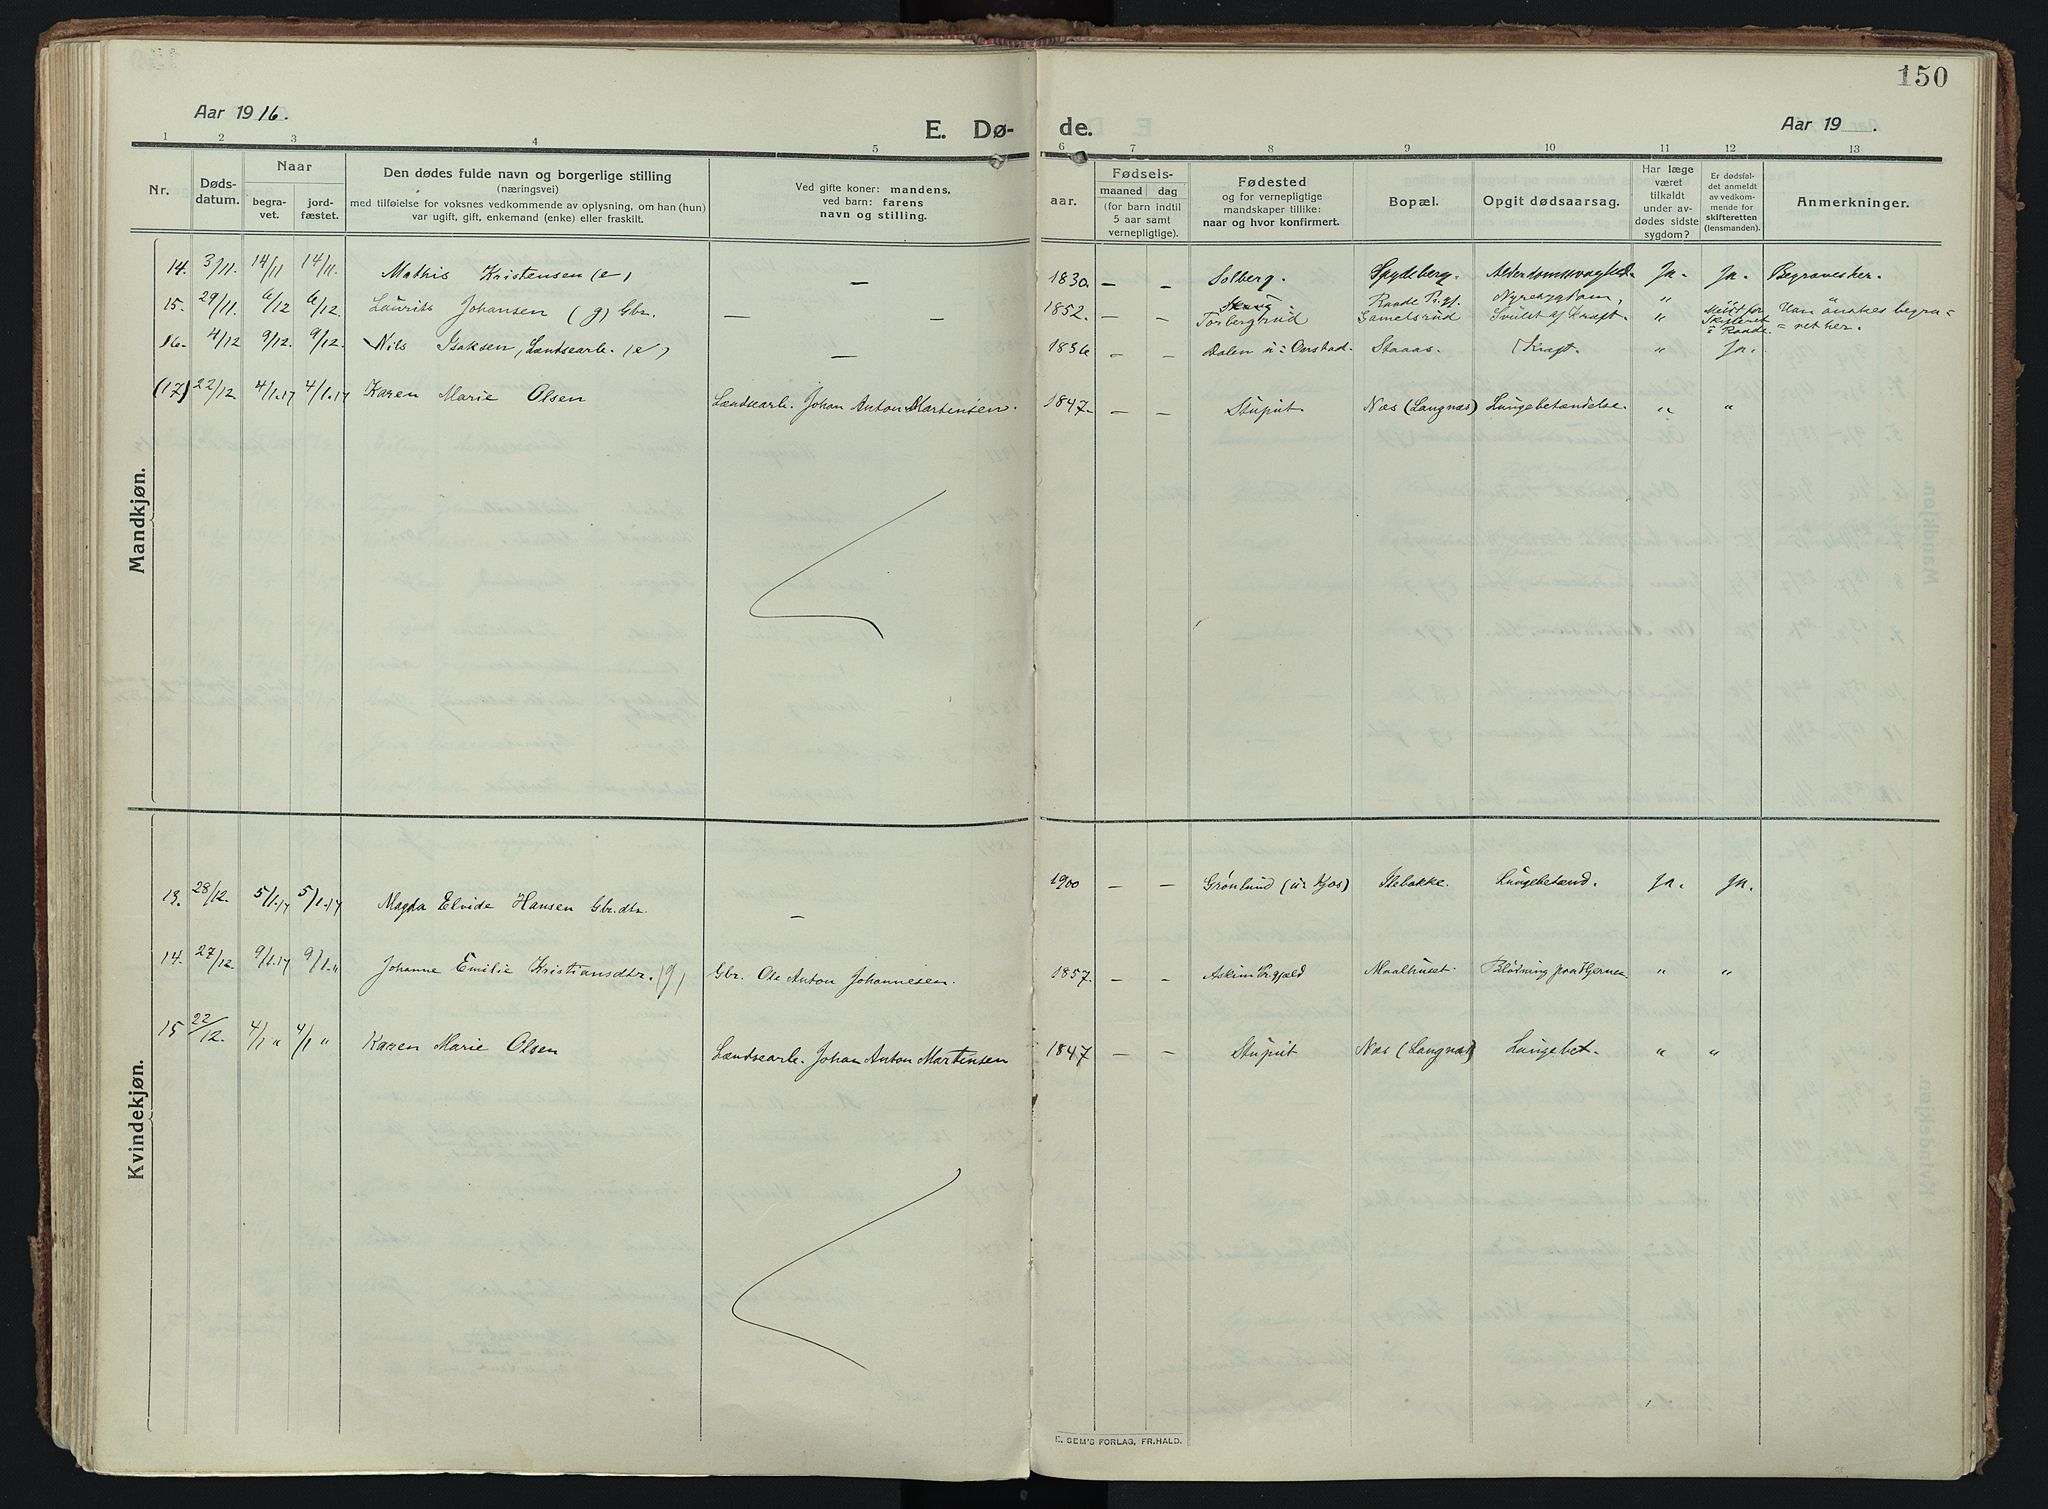 150
Aar 1916.
E. Dø- de.
Aar 19 .
1 2 3 4 5 6 7 8 9 10 11 12 13
Nr.
Døds-
datum.
Naar
begra-
vet.
jord-
fæstet.
Den dødes fulde navn og borgerlige stilling
(næringsvei)
med tilføielse for voksnes vedkommende av oplysning, om han (hun)
var ugift, gift, enkemand (enke) eller fraskilt.
Ved gifte koner: mandens,
ved barn: farens
navn og stilling.
Fødsels-
aar.
maaned dag
(for barn indtil
5 aar samt
vernepligtige).
Fødested
og for vernepligtige
mandskaper tillike:
naar og hvor konfirmert.
Bopæl.
Opgit dødsaarsag.
Har læge
været
tilkaldt
under av-
dødes sidste
sygdom?
Er dødsfal-
det anmeldt
av vedkom-
mende for
skifteretten
(lensmanden).
Anmerkninger.
Mandkjøn.
14. 3/11. 14/11 14/11. Mathis Kristensen (e) — 1830. — — Solberg. Spydeberg. Alderdomssvaghed. Ja. Ja. Begraves her.
15. 29/11. 6/12 6/12. Laurits Johansen (g) Gbr. — — 1852. — — Skaug. Torbergsrud Raade Prgj. Gamelsrud Nyresygdom, Svulst af Kræft. " Meldt for Skifteret i Raade. Han ønskes begra=
=vet her.
16. 4/12 9/12. 9/12. Nils Isaksen, Landsearb. (e) — 1836 — — Dalen u: Onstad. Staaas. (Kræft. " Ja.
(17) 22/12 4/1.17 4/1.17 Karen Marie Olsen Landsearb. Johan Anton Martensen. 1847. — — Stuput. Næs (Langnæs) Lungebetændelse. " "
Kvindekjøn.
13. 28/12. 5/1.17 5/1.17 Magda Elvide Hansen Gbr.dtr. — 1900 — — Grønlund (u: Kjos) Stebakke. Lungebetænd. Ja. Ja.
14. 27/12. 9/1.17 9/1." Johanne Emilie Kristiansdtr. (g) Gbr. Ole Anton Johannesen. 1857. — — Askim Prgjæld Maalhuset. Blødning paa Hjernen " "
15 22/12. 4/1 " 4/1 " Karen Marie Olsen Landsearb. Johan Anton Martinsen 1847 — — Stuput Næs (Langnæs) Lungebet. " "
E. SEM'S FORLAG, FR.HALD.